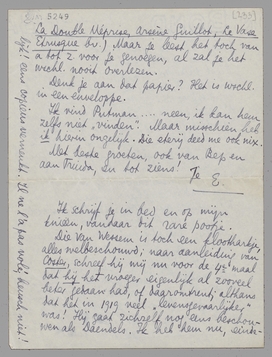 5249
La Double Méprise, Arsène Guillot, Le Vase
Etrusque bv.) Maar je leest het toch van
a tot z voor je genoegen, al zal je het
wschl. nooit overlezen.
Denk je aan dat papier? Het is wschl.
in een enveloppe.
Ik vind Putman .... neen, ik kan hem
zelfs niet "vinden". Maar misschien heb
ik hierin ongelijk. Die sterij deed me ook nix.
Met beste groeten, ook van Bep en
aan Truida, en tot ziens!
Je E.
Ik schrijf je in bed en op mijn
knieën, vandaar dit rare pootje.
Die Van Wessem is toch een ploothartje,
alles welbeschouwd; naar aanleiding van
Coster, schreef hij mij nu voor de 4e maal
dat hij het vroeger eigenlijk al zooveel
beter gedaan had, of daaromtrent; althans
dat het in 1919 veel "levensgevaarlijker"
was! Hij gaat zichzelf nog eens beschou-
wen als Daendels. Ik heb hem nu,